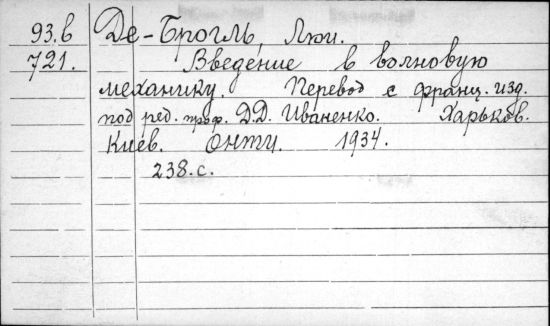 93.в Де-Брогль, Луи.
721. Введение в волновую
механику. Перевод с франц. изд.
под ред. проф. Д.Д. Иваненко. Харьков.
Киев. ОНТИ. 1934.
238.с.